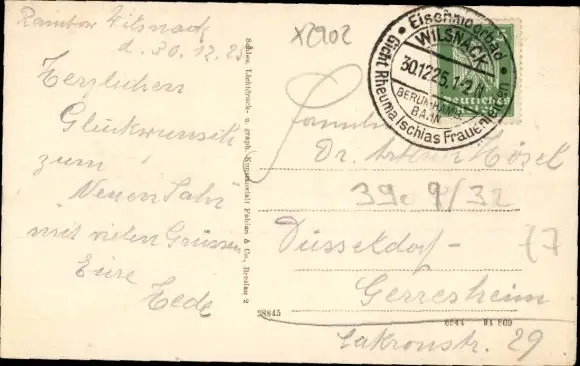 Wilsnack
d. 30.12.25
Herzlichen
Glückwunsch
zum
"Neuen Jahr"
mit vielen Grüssen
Eure
Hede
Schles. Lichtdruck- u. graph. Kunstanstalt Fabian & Co., Breslau 2
X2902
Eisenmoorbad
WILSNACK
30.12.25.1-2 N
BERLIN-HAMB
BAHN
Gicht Rheuma Ischias Frauenleiden
5
Deutsches
Familie
Dr. Arthur Hösel
39c 9/32
Düsseldorf-
77
Gerresheim
28845
91 809
29